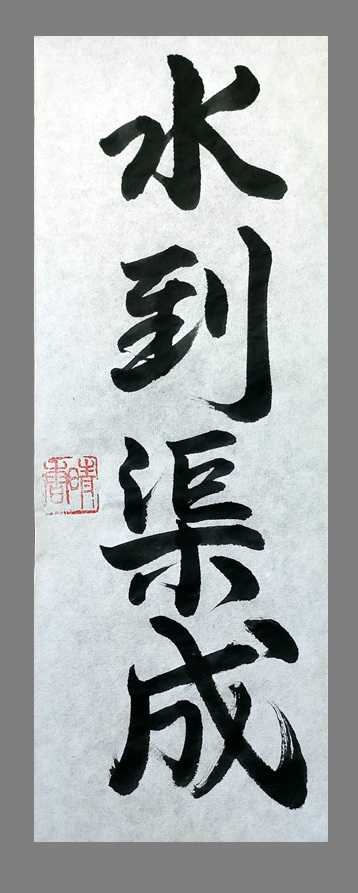 水到渠成
晴書